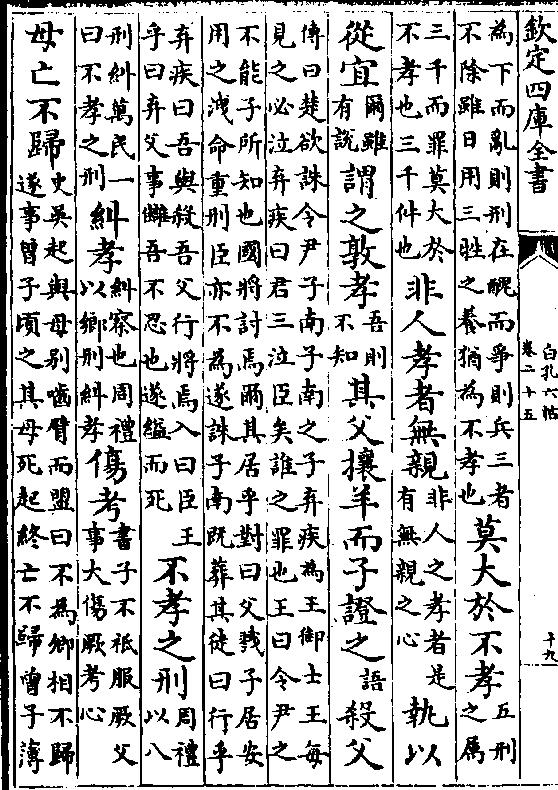 欽定四庫全書
白孔六帖
卷二十五
十九
為下而亂則刑在醜而爭則兵三者
不除雖日用三牲之養猶為不孝也
莫大於不孝
五刑
之属
三千而罪莫大於
不孝也三千件也
非人孝者無親
非人之孝者是
有無親之心
執以
從宜
爾雖
有說
謂之敦孝
吾則
不知
其父攘羊而子證之
語
殺父
傳曰楚欲誅令尹子南子南之子弃疾為王御士王每
見之必泣弃疾曰君三泣臣矣誰之罪也王曰令尹之
不能子所知也國將討焉爾其居乎對曰父戮子居安
用之洩命重刑臣亦不為遂誅子南既葬其徒曰行乎
弃疾曰吾與殺吾父行將焉入曰臣王
乎曰弃父事讎吾不忍也遂縊而死
不孝之刑
周禮
以八
刑糾萬民一
曰不孝之刑
糾孝
糾察也周禮
以鄉刑糾孝
傷考
書子不祗服厥父
事大傷厥考心
母亡不歸
史吳起與母别嚙臂而盟曰不為卿相不歸
遂事曾子頃之其母死起終亡不歸曾子薄